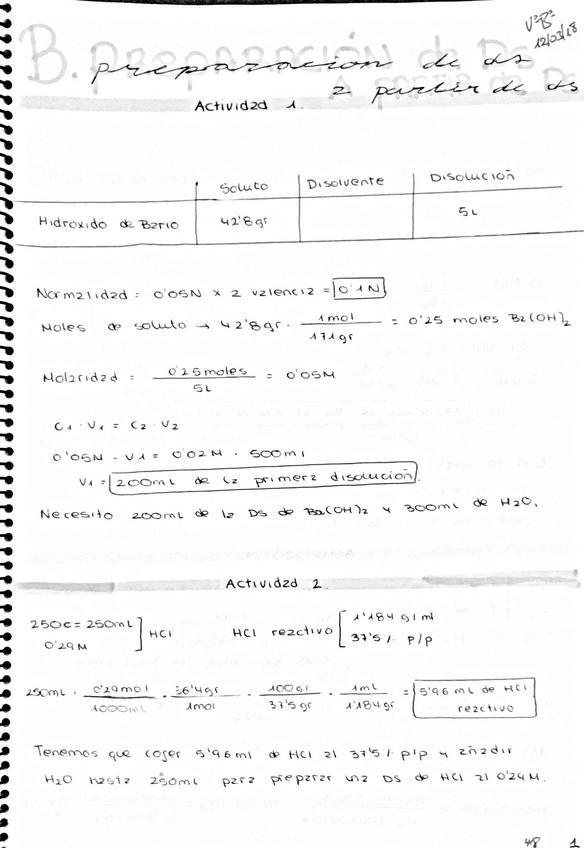 VºBº
12/03/18
B. PREPARACIÓN de Ds
A partir de Ds
preparacion de ds
a partir de ds
Actividad 1.
Soluto Disolvente Disolución
Hidroxido de Bario 42'8gr 5L
Normalidad = 0'05N x 2 valencia = 0'1N
Moles de soluto → 42'8gr · 1mol / 171gr = 0'25 moles Ba(OH)₂
Molaridad = 0'25moles / 5L = 0'05M
C₁ · V₁ = C₂ · V₂
0'05M · V₁ = 0'02M · 500ml
V₁ = 200ml de la primera disolución.
Necesito 200ml de la Ds de Ba(OH)₂ y 300ml de H₂O.
Actividad 2.
250cc = 250mL
0'29M
] HCl
HCl reactivo [
1'184 g/ml
37'5% p/p
250ml · 0'29mol / 1000ml · 36'4gr / 1mol · 100gr / 37'5gr · 1ml / 1'184gr = 5'96 ml de HCl
reactivo
Tenemos que coger 5'96ml de HCl al 37'5% p/p y añadir
H₂O hasta 250ml para preparar una DS de HCl al 0'29M.
48 1